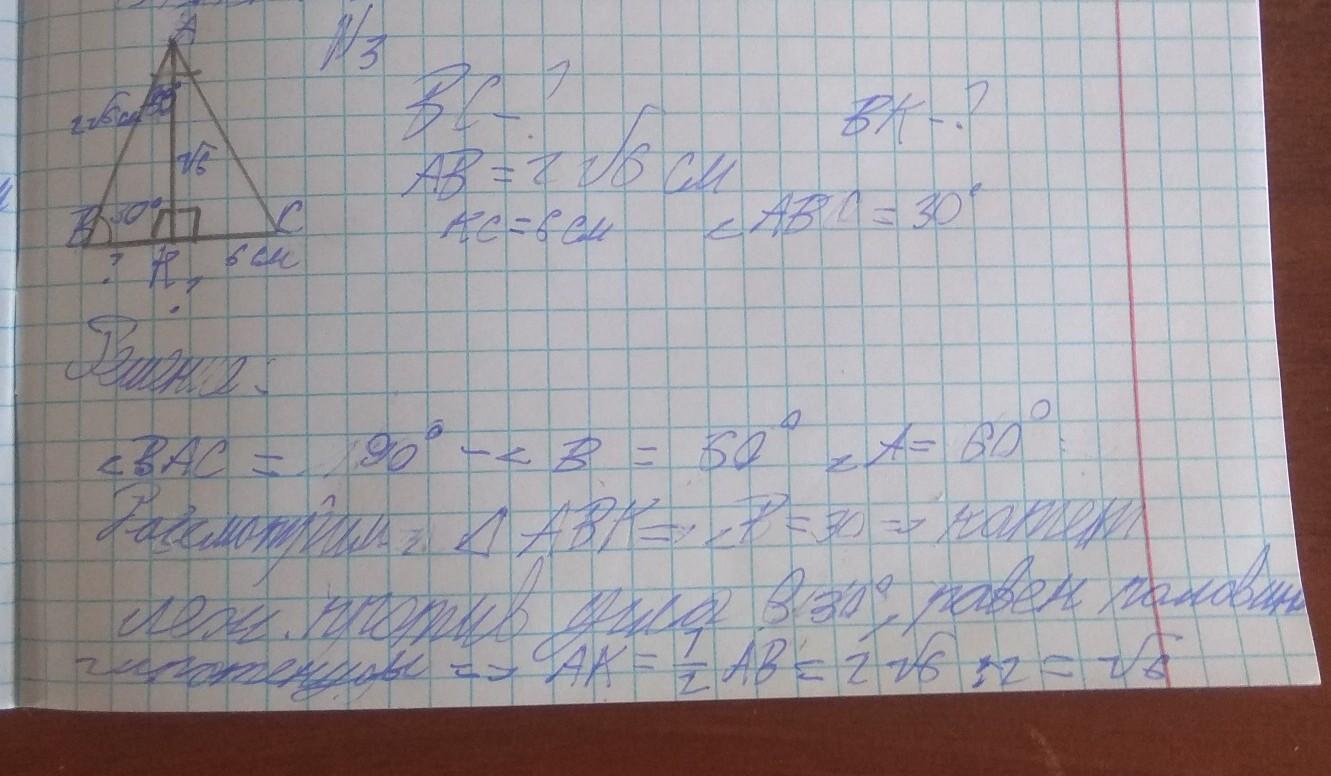 N3
A
2√6 см
30°
√6
B 30° C
? K 6 см
?
BC-? BK-?
AB = 2√6 см
KC=6 см <ABC = 30°
Решение:
<BAC = 90° - < B = 60° <A= 60°
Рассмотрим △ ABK => <B = 30 => катет
леж. против угла в 30°, равен половине
гипотенузы => AK = 1/2 AB = 2√6 : 2 = √6